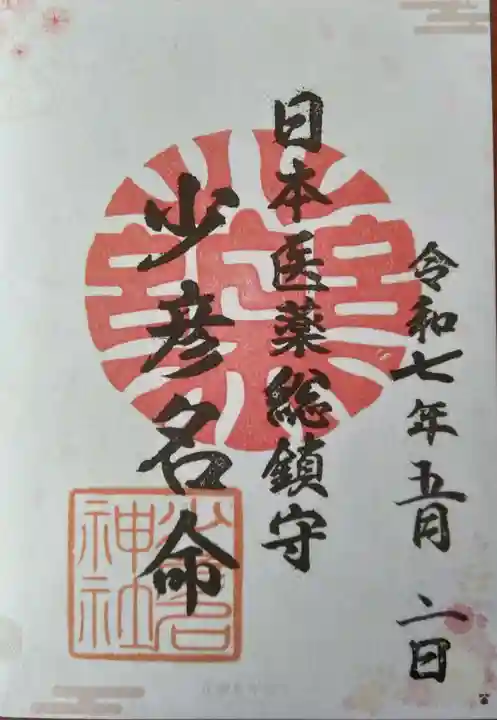 令和七年五月二日
日本医薬総鎮守
少彦名命
少彦名
神社